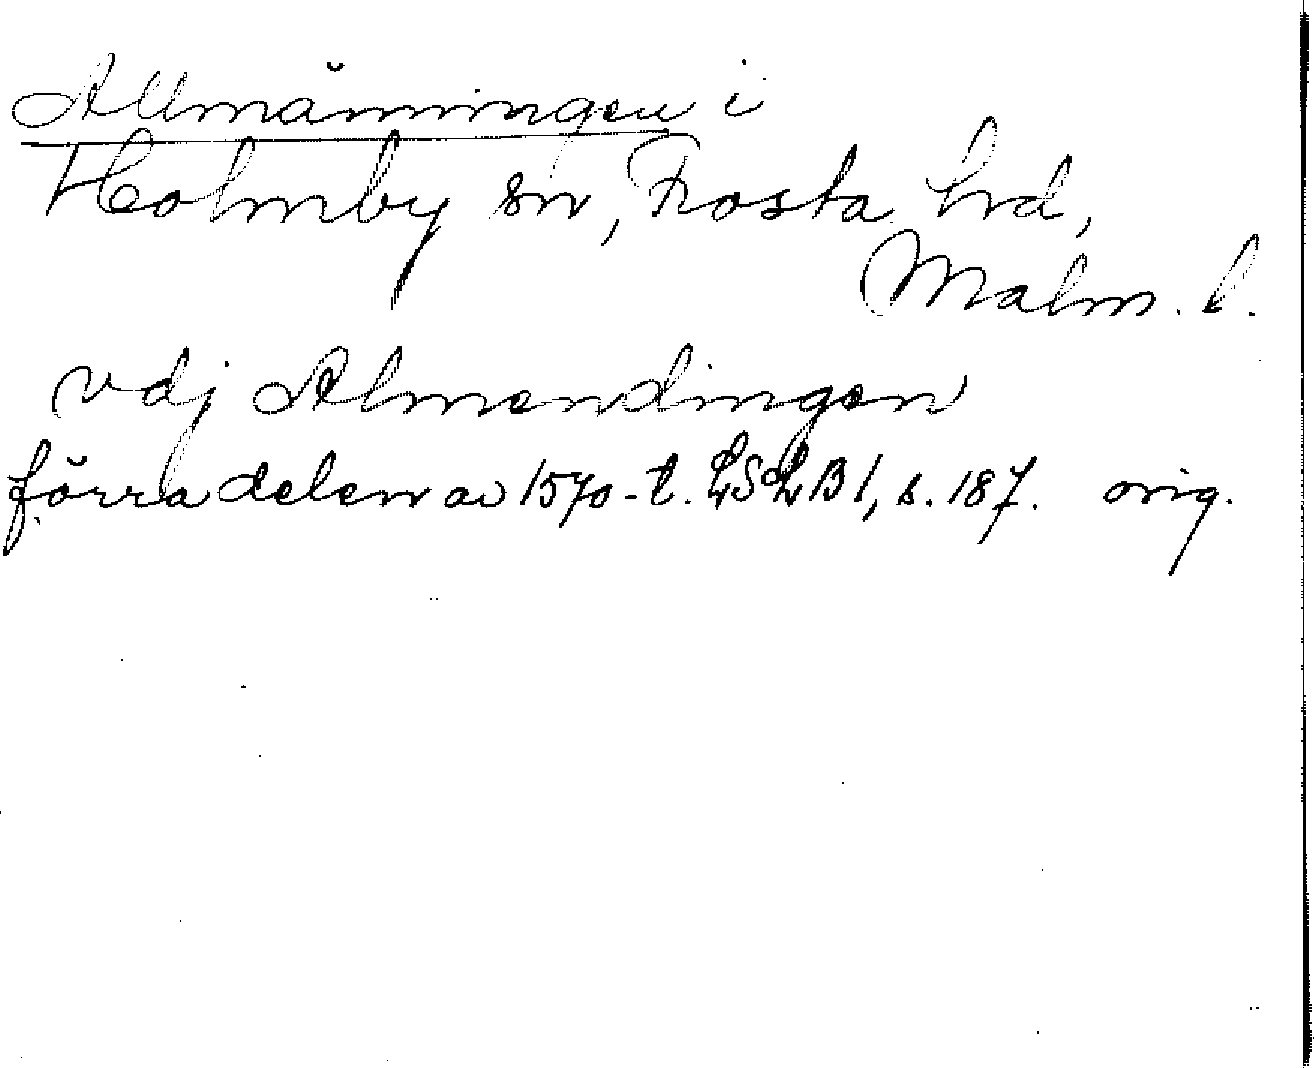 Allmänningen i
Holmby sn, Frosta hd,
Malm. l.
vdj Almendingen
förra delen av 1570-t. LSLB 1, s. 187. orig.